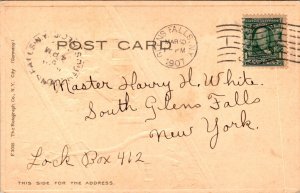 POST CARD
GLENS FALLS, N.Y.
MAR
1907
Master Harry H. White.
South Glens Falls
New York.
Lock Box 412
THIS SIDE FOR THE ADDRESS.
The Rotograph Co., N.Y. City (Germany)